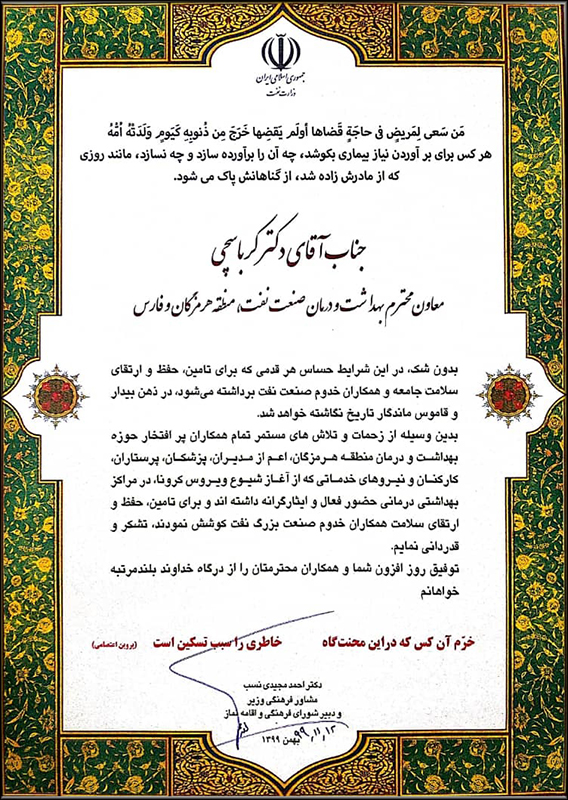 جمهوری اسلامی ایران
وزارت نفت
مَن سَعی لِمَریضٍ فی حاجَةٍ قَضاها أولَم یَقضِها خَرَجَ مِن ذُنوبِهِ کَیَومٍ وَلَدَتهُ اُمُّهُ
هر کس برای بر آوردن نیاز بیماری بکوشد، چه آن را برآورده سازد و چه نسازد، مانند روزی
که از مادرش زاده شد، از گناهانش پاک می شود.
جناب آقای دکتر کرباسچی
معاون محترم بهداشت و درمان صنعت نفت، منطقه هرمزگان و فارس
بدون شک، در این شرایط حساس هر قدمی که برای تامین، حفظ و ارتقای
سلامت جامعه و همکاران خدوم صنعت نفت برداشته می‌شود، در ذهن بیدار
و قاموس ماندگار تاریخ نگاشته خواهد شد.
بدین وسیله از زحمات و تلاش های مستمر تمام همکاران پر افتخار حوزه
بهداشت و درمان منطقه هرمزگان، اعم از مدیران، پزشکان، پرستاران،
کارکنان و نیروهای خدماتی که از آغاز شیوع ویروس کرونا، در مراکز
بهداشتی درمانی حضور فعال و ایثارگرانه داشته اند و برای تامین، حفظ و
ارتقای سلامت همکاران خدوم صنعت بزرگ نفت کوشش نمودند، تشکر و
قدردانی نمایم.
توفیق روز افزون شما و همکاران محترمتان را از درگاه خداوند بلندمرتبه
خواهانم
خرّم آن کس که دراین محنت‌گاه خاطری را سبب تسکین است (پروین اعتصامی)
دکتر احمد مجیدی نسب
مشاور فرهنگی وزیر
و دبیر شورای فرهنگی و اقامه نماز
بهمن ۱۳۹۹
۹۹,۱۱,۱۲